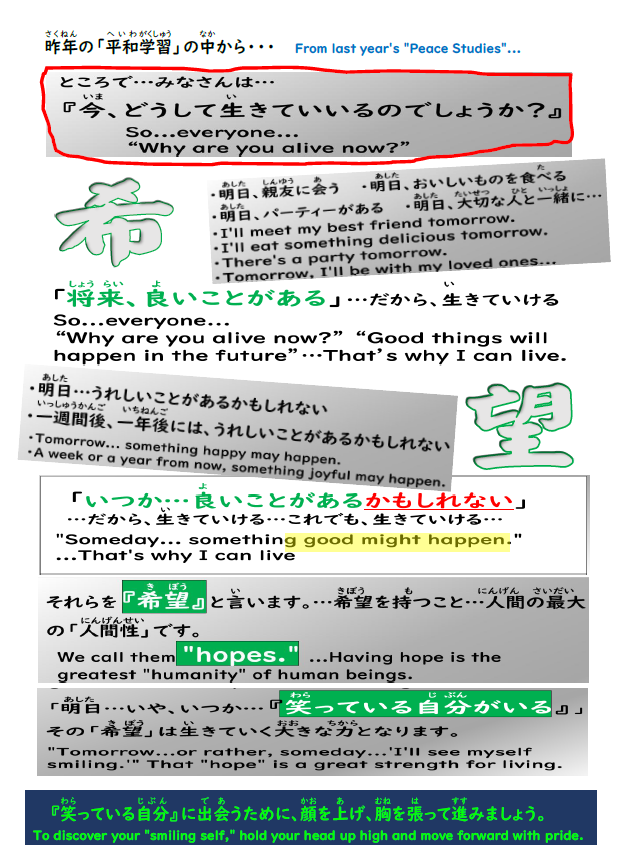 昨年の「平和学習」の中から・・・ From last year's "Peace Studies"...
ところで…みなさんは…
『今、どうして生きていいるのでしょうか？』
So...everyone...
“Why are you alive now?”
希
・明日、親友に会う ・明日、おいしいものを食べる
・明日、パーティーがある ・明日、大切な人と一緒に…
・I'll meet my best friend tomorrow.
・I'll eat something delicious tomorrow.
・There's a party tomorrow.
・Tomorrow, I'll be with my loved ones...
「将来、良いことがある」…だから、生きていける
So...everyone...
“Why are you alive now?” “Good things will
happen in the future”…That’s why I can live.
・明日…うれしいことがあるかもしれない
・一週間後、一年後には、うれしいことがあるかもしれない
・Tomorrow... something happy may happen.
・A week or a year from now, something joyful may happen.
望
「いつか…良いことがあるかもしれない」
…だから、生きていける…これでも、生きていける…
"Someday... something good might happen."
...That's why I can live
それらを『希望』と言います。…希望を持つこと…人間の最大
の「人間性」です。
We call them "hopes." ...Having hope is the
greatest "humanity" of human beings.
「明日…いや、いつか…『笑っている自分がいる』」
その「希望」は生きていく大きな力となります。
"Tomorrow...or rather, someday...'I'll see myself
smiling.'" That "hope" is a great strength for living.
『笑っている自分』に出会うために、顔を上げ、胸を張って進みましょう。
To discover your "smiling self," hold your head up high and move forward with pride.